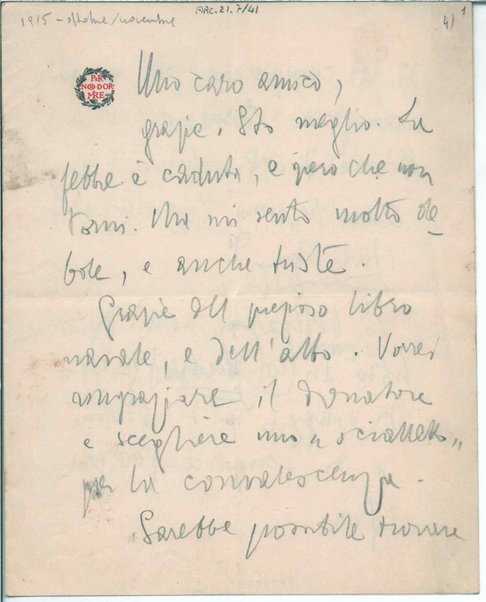 ARC.21.7/41
1915 - ottobre/novembre
4)
1
PER
NON DOR
MIRE
Mio caro amico,
grazie. Sto meglio. La
febbre è caduta, e spero che non
torni. Ma mi sento molto de
bole, e anche triste.
Grazie del prezioso libro
navale, e dell'altro. Vorrei
ringraziare il donatore
e scegliere uno "scialletto"
per la convalescenza.
Sarebbe possibile trovare